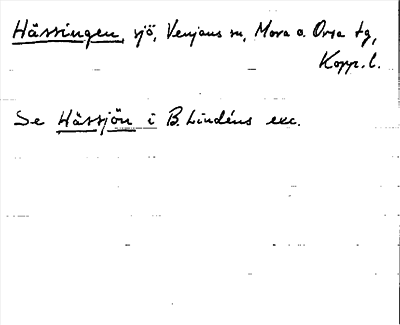 Hässingen, sjö, Venjans sn, Mora o. Orsa tg,
Kopp. l.
Se Hässjön i B. Lindéns exc.